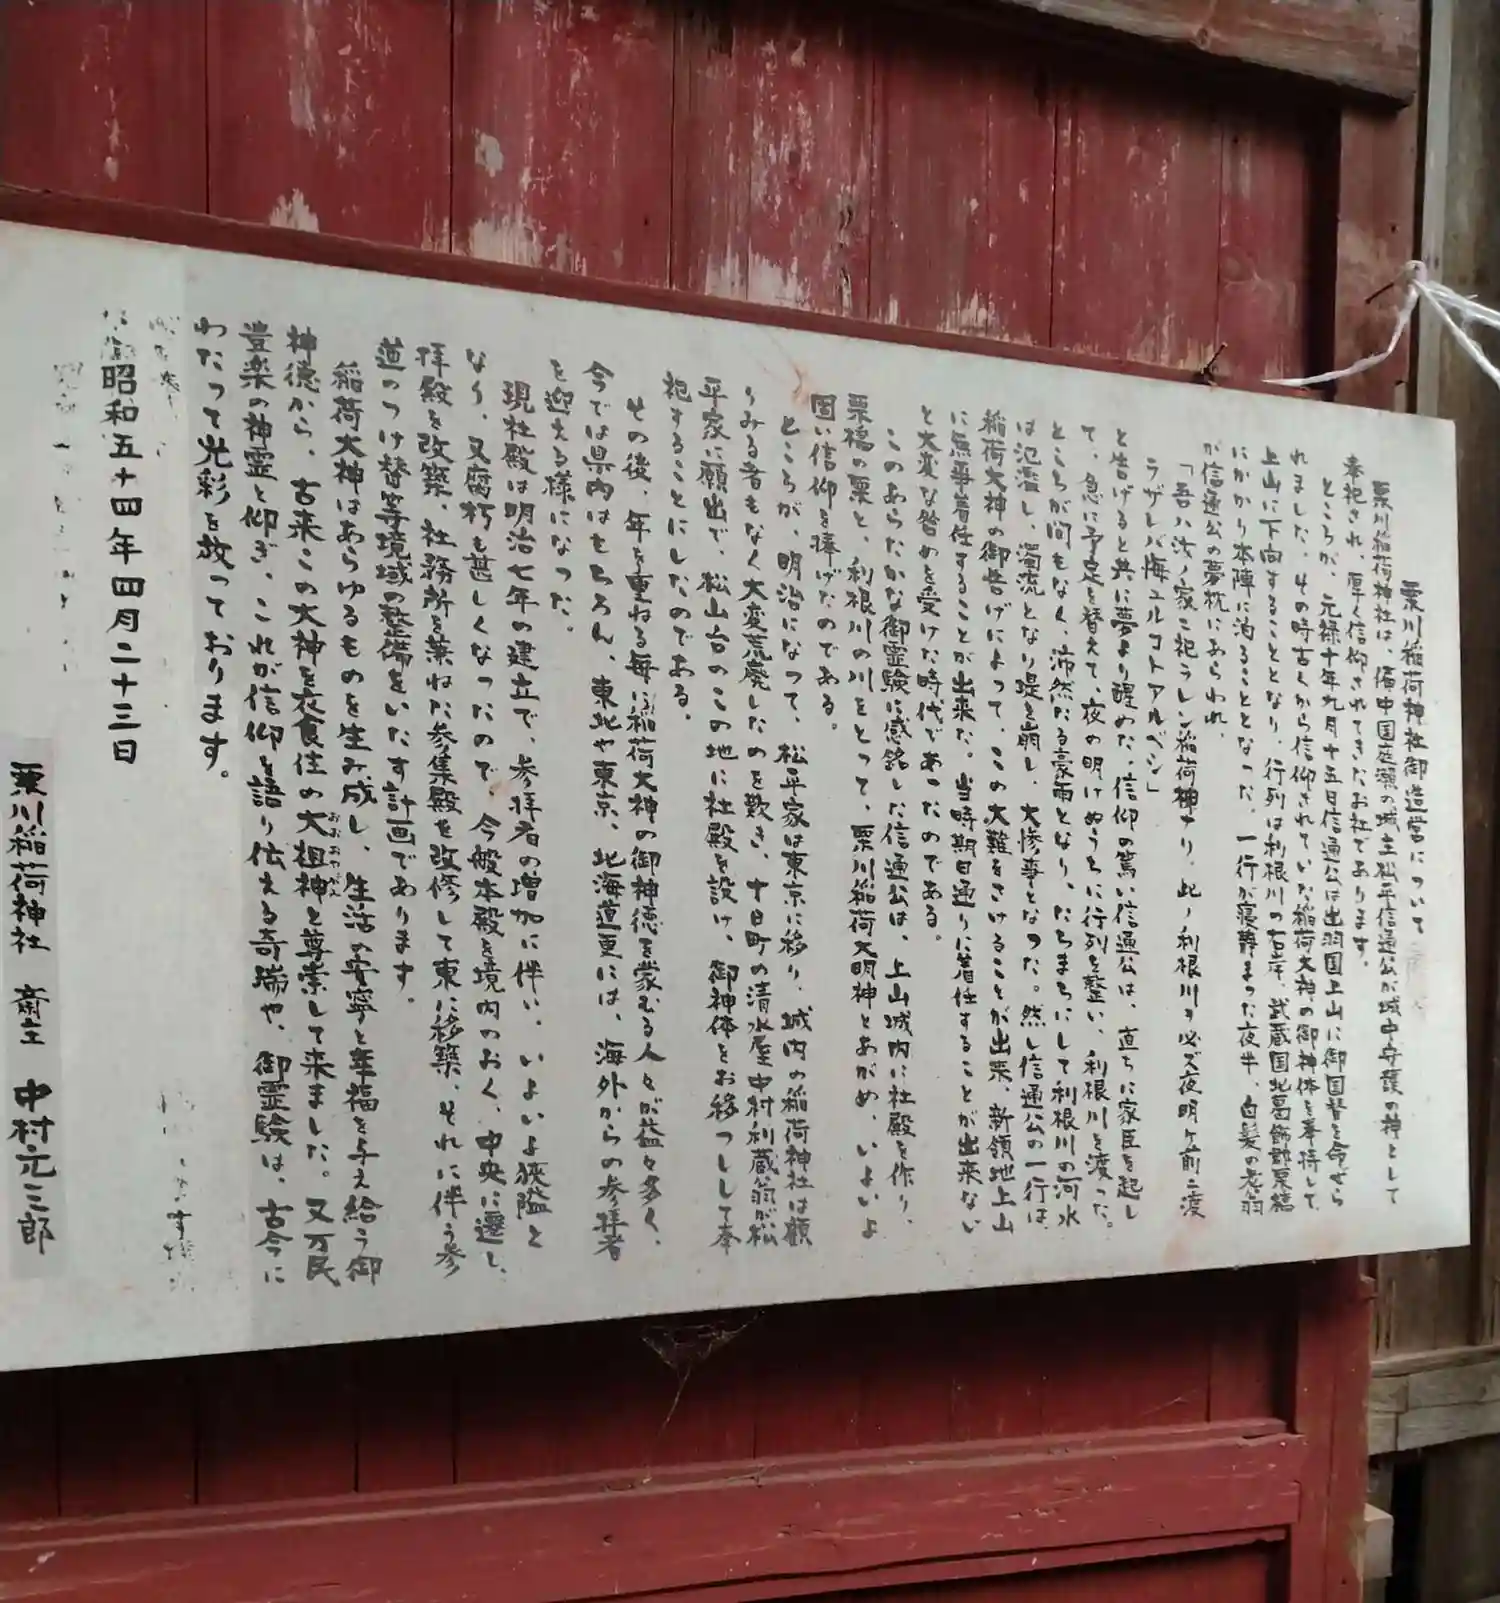 栗川稲荷神社御造営について
栗川稲荷神社は、備中国庭瀬の城主松平信通公が城中守護の神として
奉祀され、厚く信仰されてきたお社であります。
ところが、元禄十年九月十五日信通公は出羽国上山に御国替を命ぜら
れました。その時古くから信仰されていた稲荷大神の御神体を奉持して、
上山に下向することとなり、行列は利根川の右岸、武蔵国北葛飾郡栗橋
にかかり本陣に泊ることとなった。一行が寝静まった夜半、白髪の老翁
が信通公の夢枕にあらわれ、
「吾ハ汝ノ家ニ祀ラレシ稲荷神ナリ、此ノ利根川ヲ必ズ夜明ケ前ニ渡
ラザレバ悔ユルコトアルベシ」
と告げると共に夢より醒めた、信仰の篤い信通公は、直ちに家臣を起し
て、急に予定を替えて、夜の明けぬうちに行列を整い、利根川を渡った。
ところが間もなく、沛然たる豪雨となり、たちまちにして利根川の河水
は氾濫し、濁流となり堤を崩し、大惨事となった。然し信通公の一行は、
稲荷大神の御告げによって、この大難をさけることが出来、新領地上山
に無事着任することが出来た。当時期日通りに着任することが出来ない
と大変な咎めを受けた時代であったのである。
このあらたかな御霊験に感銘した信通公は、上山城内に社殿を作り、
栗橋の栗と、利根川の川をとって、栗川稲荷大明神とあがめ、いよいよ
固い信仰を捧げたのである。
ところが、明治になって、松平家は東京に移り、城内の稲荷神社は顧
りみる者もなく大変荒廃したのを歎き、十日町の清水屋中村利蔵翁が松
平家に願出で、松山台のこの地に社殿を設け、御神体をお移つしして奉
祀することにしたのである。
その後、年を重ねる毎に稲荷大神の御神徳を蒙むる人々が益々多く、
今では県内はもちろん、東北や東京、北海道更には、海外からの参拝者
を迎える様になった。
現社殿は明治七年の建立で、参拝者の増加に伴い、いよいよ狭隘と
なり、又腐朽も甚しくなったので、今般本殿を境内のおく、中央に遷し、
拝殿を改築、社務所を兼ねた参集殿を改修して東に移築、それに伴う参
道のつけ替等境域の整備をいたす計画であります。
稲荷大神はあらゆるものを生み成し、生活の安寧と幸福を与え給う御
神徳から、古来この大神を衣食住の大祖神と尊崇して来ました。又万民
豊楽の神霊と仰ぎ、これが信仰を語り伝える奇瑞や、御霊験は、古今に
わたって光彩を放っております。
昭和五十四年四月二十三日
栗川稲荷神社　斎主　中村元三郎